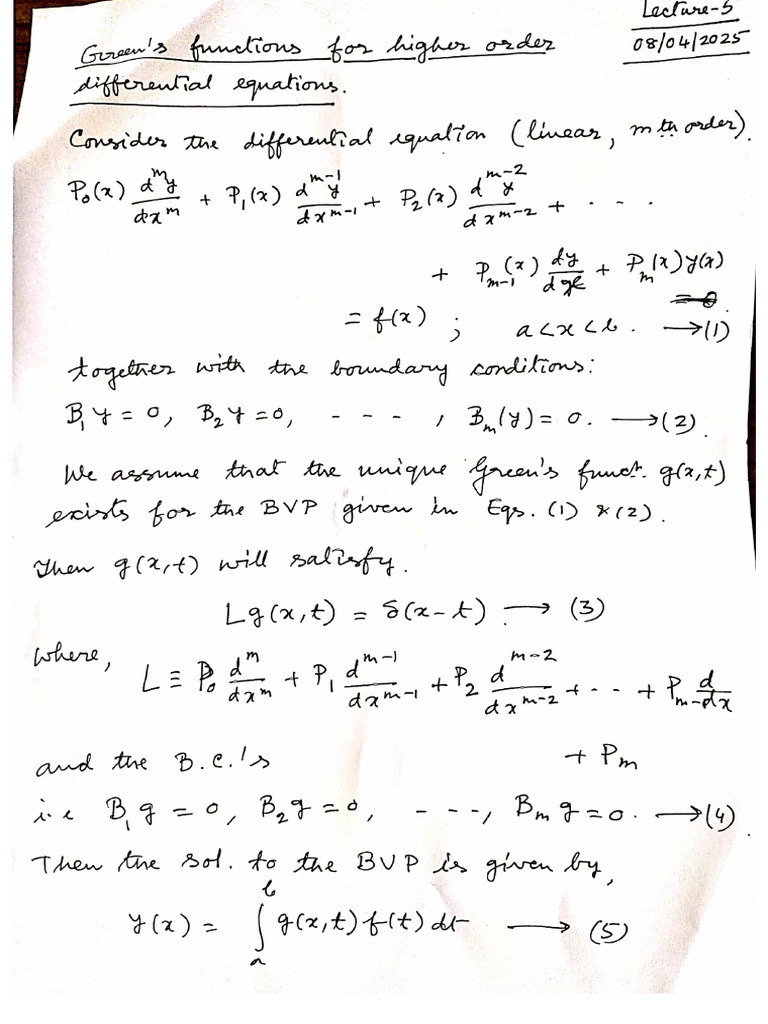 Lecture-5
08/04/2025
Green's functions for higher order
differential equations.
Consider the differential equation (linear, mth order).
P₀(x) dᵐy/dxᵐ + P₁(x) dᵐ⁻¹y/dxᵐ⁻¹ + P₂(x) dᵐ⁻²y/dxᵐ⁻² + . . .
+ Pₘ₋₁(x) dy/dx + Pₘ(x) y(x)
= f(x) ; a < x < b. → (1)
together with the boundary conditions:
B₁y = 0, B₂y = 0, - - - - , Bₘ(y) = 0. → (2).
We assume that the unique Green's funct. g(x,t)
exists for the BVP given in Eqs. (1) & (2).
Then g(x,t) will satisfy.
Lg(x,t) = δ(x-t) → (3)
where,
L ≡ P₀ dᵐ/dxᵐ + P₁ dᵐ⁻¹/dxᵐ⁻¹ + P₂ dᵐ⁻²/dxᵐ⁻² + - - + Pₘ₋₁ d/dx
+ Pₘ
and the B.C.'s
i.e B₁g = 0, B₂g = 0, - - - -, Bₘg = 0. → (4)
Then the sol. to the BVP is given by,
y(x) = ∫ₐᵇ g(x,t) f(t) dt → (5)